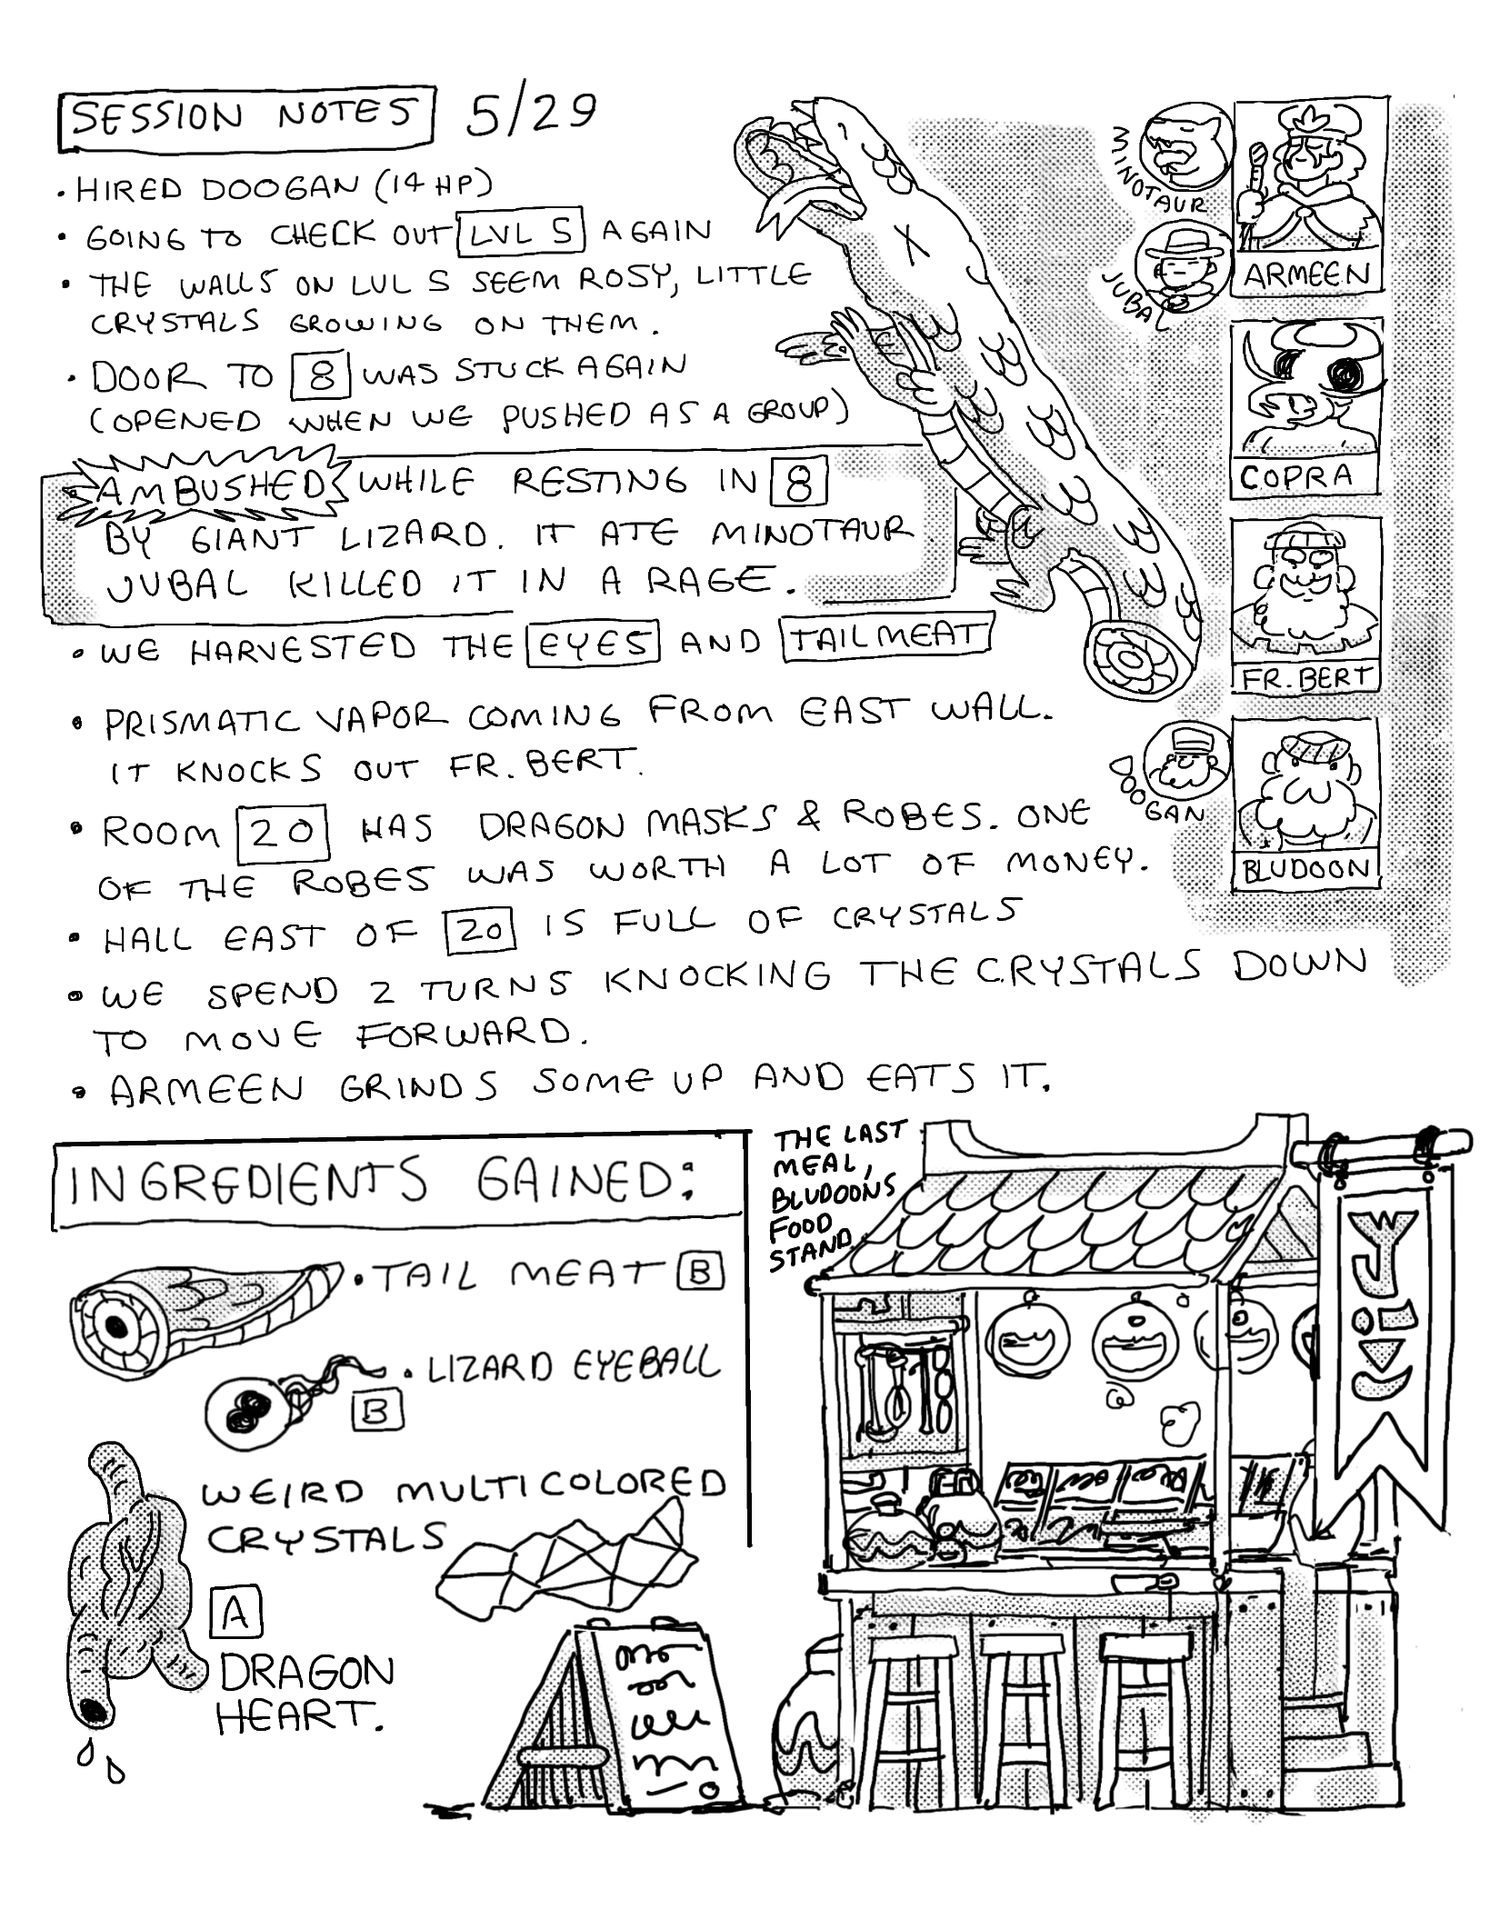 SESSION NOTES 5/29
• HIRED DOOGAN (14 HP)
• GOING TO CHECK OUT LVL 5 AGAIN
• THE WALLS ON LVL 5 SEEM ROSY, LITTLE
CRYSTALS GROWING ON THEM.
• DOOR TO 8 WAS STUCK AGAIN
(OPENED WHEN WE PUSHED AS A GROUP)
• AMBUSHED WHILE RESTING IN 8
BY GIANT LIZARD. IT ATE MINOTAUR
JUBAL KILLED IT IN A RAGE.
• WE HARVESTED THE EYES AND TAIL MEAT
• PRISMATIC VAPOR COMING FROM EAST WALL.
IT KNOCKS OUT FR. BERT.
• ROOM 20 HAS DRAGON MASKS & ROBES. ONE
OF THE ROBES WAS WORTH A LOT OF MONEY.
• HALL EAST OF 20 IS FULL OF CRYSTALS
• WE SPEND 2 TURNS KNOCKING THE CRYSTALS DOWN
TO MOVE FORWARD.
• ARMEEN GRINDS SOME UP AND EATS IT.
MINOTAUR
ARMEEN
JUBAL
COPRA
FR. BERT
DOOGAN
BLUDOON
INGREDIENTS GAINED:
• TAIL MEAT B
• LIZARD EYEBALL
B
WEIRD MULTICOLORED
CRYSTALS
A
DRAGON
HEART.
THE LAST
MEAL,
BLUDOONS
FOOD
STAND